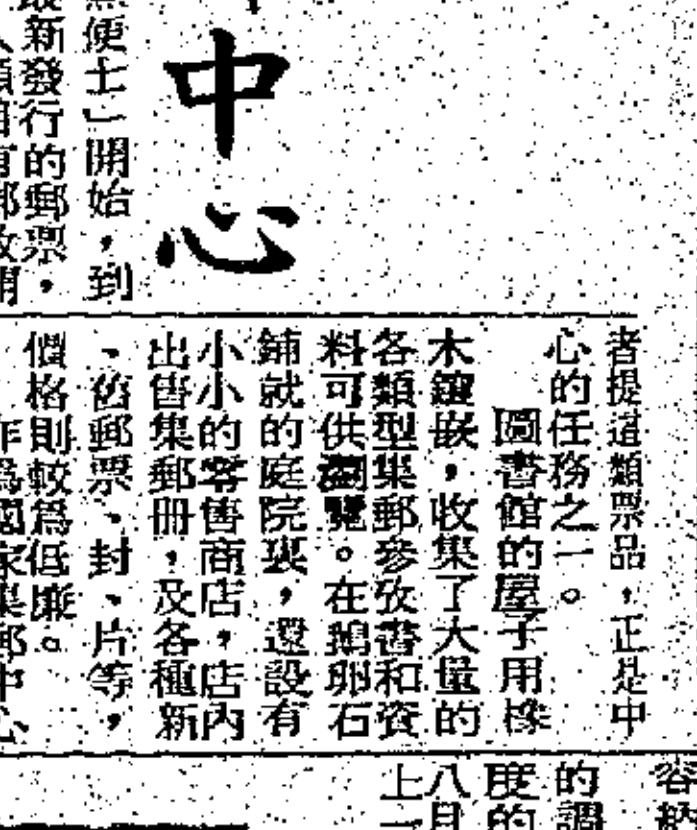 中心
便士」開始，到
最新發行的郵票，
者提這類票品，正是中
心的任務之一。
圖書館的屋子用橡
木鑲嵌，收集了大量的
各類型集郵參攷書和資
料可供瀏覽。在鵝卵石
鋪就的庭院裏，還設有
小小的零售商店，店內
出售集郵冊，及各種新
、舊郵票、封、片等，
價格則較爲低廉。
作爲國家集郵中心
容
的調
度的
八月
上一